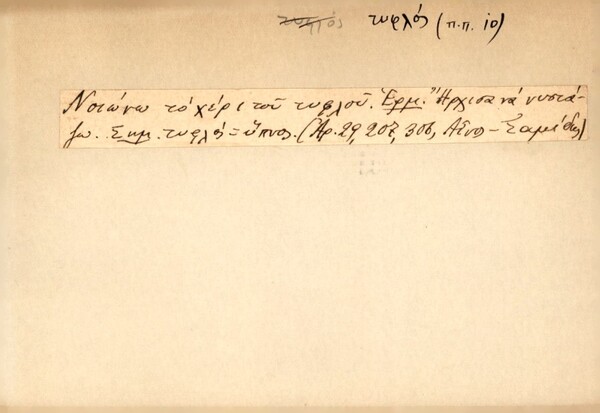 τυφλός τυφλός (π.π. 10)
Νοιώνω τὸ χέρι τοῦ τυφλοῦ. Ἑρμ. Ἄρχισα νὰ νυστά-
ζω. Σημ. τυφλός = ὕπνος. (Ἀρ. 29, 207, 306, Αἶνος - Σαμίδης)